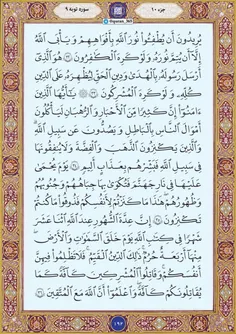 جزء ۱۰
سوره توبه ۹
يُرِيدُونَ أَن يُطْفِـُٔوا۟ نُورَ ٱللَّهِ بِأَفْوَٰهِهِمْ وَيَأْبَى ٱللَّهُ
إِلَّآ أَن يُتِمَّ نُورَهُۥ وَلَوْ كَرِهَ ٱلْكَـٰفِرُونَ ۝٣٢ هُوَ ٱلَّذِىٓ
أَرْسَلَ رَسُولَهُۥ بِٱلْهُدَىٰ وَدِينِ ٱلْحَقِّ لِيُظْهِرَهُۥ عَلَى ٱلدِّينِ
كُلِّهِۦ وَلَوْ كَرِهَ ٱلْمُشْرِكُونَ ۝٣٣ يَـٰٓأَيُّهَا ٱلَّذِينَ
ءَامَنُوٓا۟ إِنَّ كَثِيرًا مِّنَ ٱلْأَحْبَارِ وَٱلرُّهْبَانِ لَيَأْكُلُونَ
أَمْوَٰلَ ٱلنَّاسِ بِٱلْبَـٰطِلِ وَيَصُدُّونَ عَن سَبِيلِ ٱللَّهِ
وَٱلَّذِينَ يَكْنِزُونَ ٱلذَّهَبَ وَٱلْفِضَّةَ وَلَا يُنفِقُونَهَا
فِى سَبِيلِ ٱللَّهِ فَبَشِّرْهُم بِعَذَابٍ أَلِيمٍ ۝٣٤ يَوْمَ يُحْمَىٰ
عَلَيْهَا فِى نَارِ جَهَنَّمَ فَتُكْوَىٰ بِهَا جِبَاهُهُمْ وَجُنُوبُهُمْ
وَظُهُورُهُمْ هَـٰذَا مَا كَنَزْتُمْ لِأَنفُسِكُمْ فَذُوقُوا۟ مَا كُنتُمْ
تَكْنِزُونَ ۝٣٥ إِنَّ عِدَّةَ ٱلشُّهُورِ عِندَ ٱللَّهِ ٱثْنَا عَشَرَ
شَهْرًا فِى كِتَـٰبِ ٱللَّهِ يَوْمَ خَلَقَ ٱلسَّمَـٰوَٰتِ وَٱلْأَرْضَ
مِنْهَآ أَرْبَعَةٌ حُرُمٌ ذَٰلِكَ ٱلدِّينُ ٱلْقَيِّمُ فَلَا تَظْلِمُوا۟ فِيهِنَّ
أَنفُسَكُمْ وَقَـٰتِلُوا۟ ٱلْمُشْرِكِينَ كَآفَّةً كَمَا
يُقَـٰتِلُونَكُمْ كَآفَّةً وَٱعْلَمُوٓا۟ أَنَّ ٱللَّهَ مَعَ ٱلْمُتَّقِينَ ۝٣٦
۱۹۲